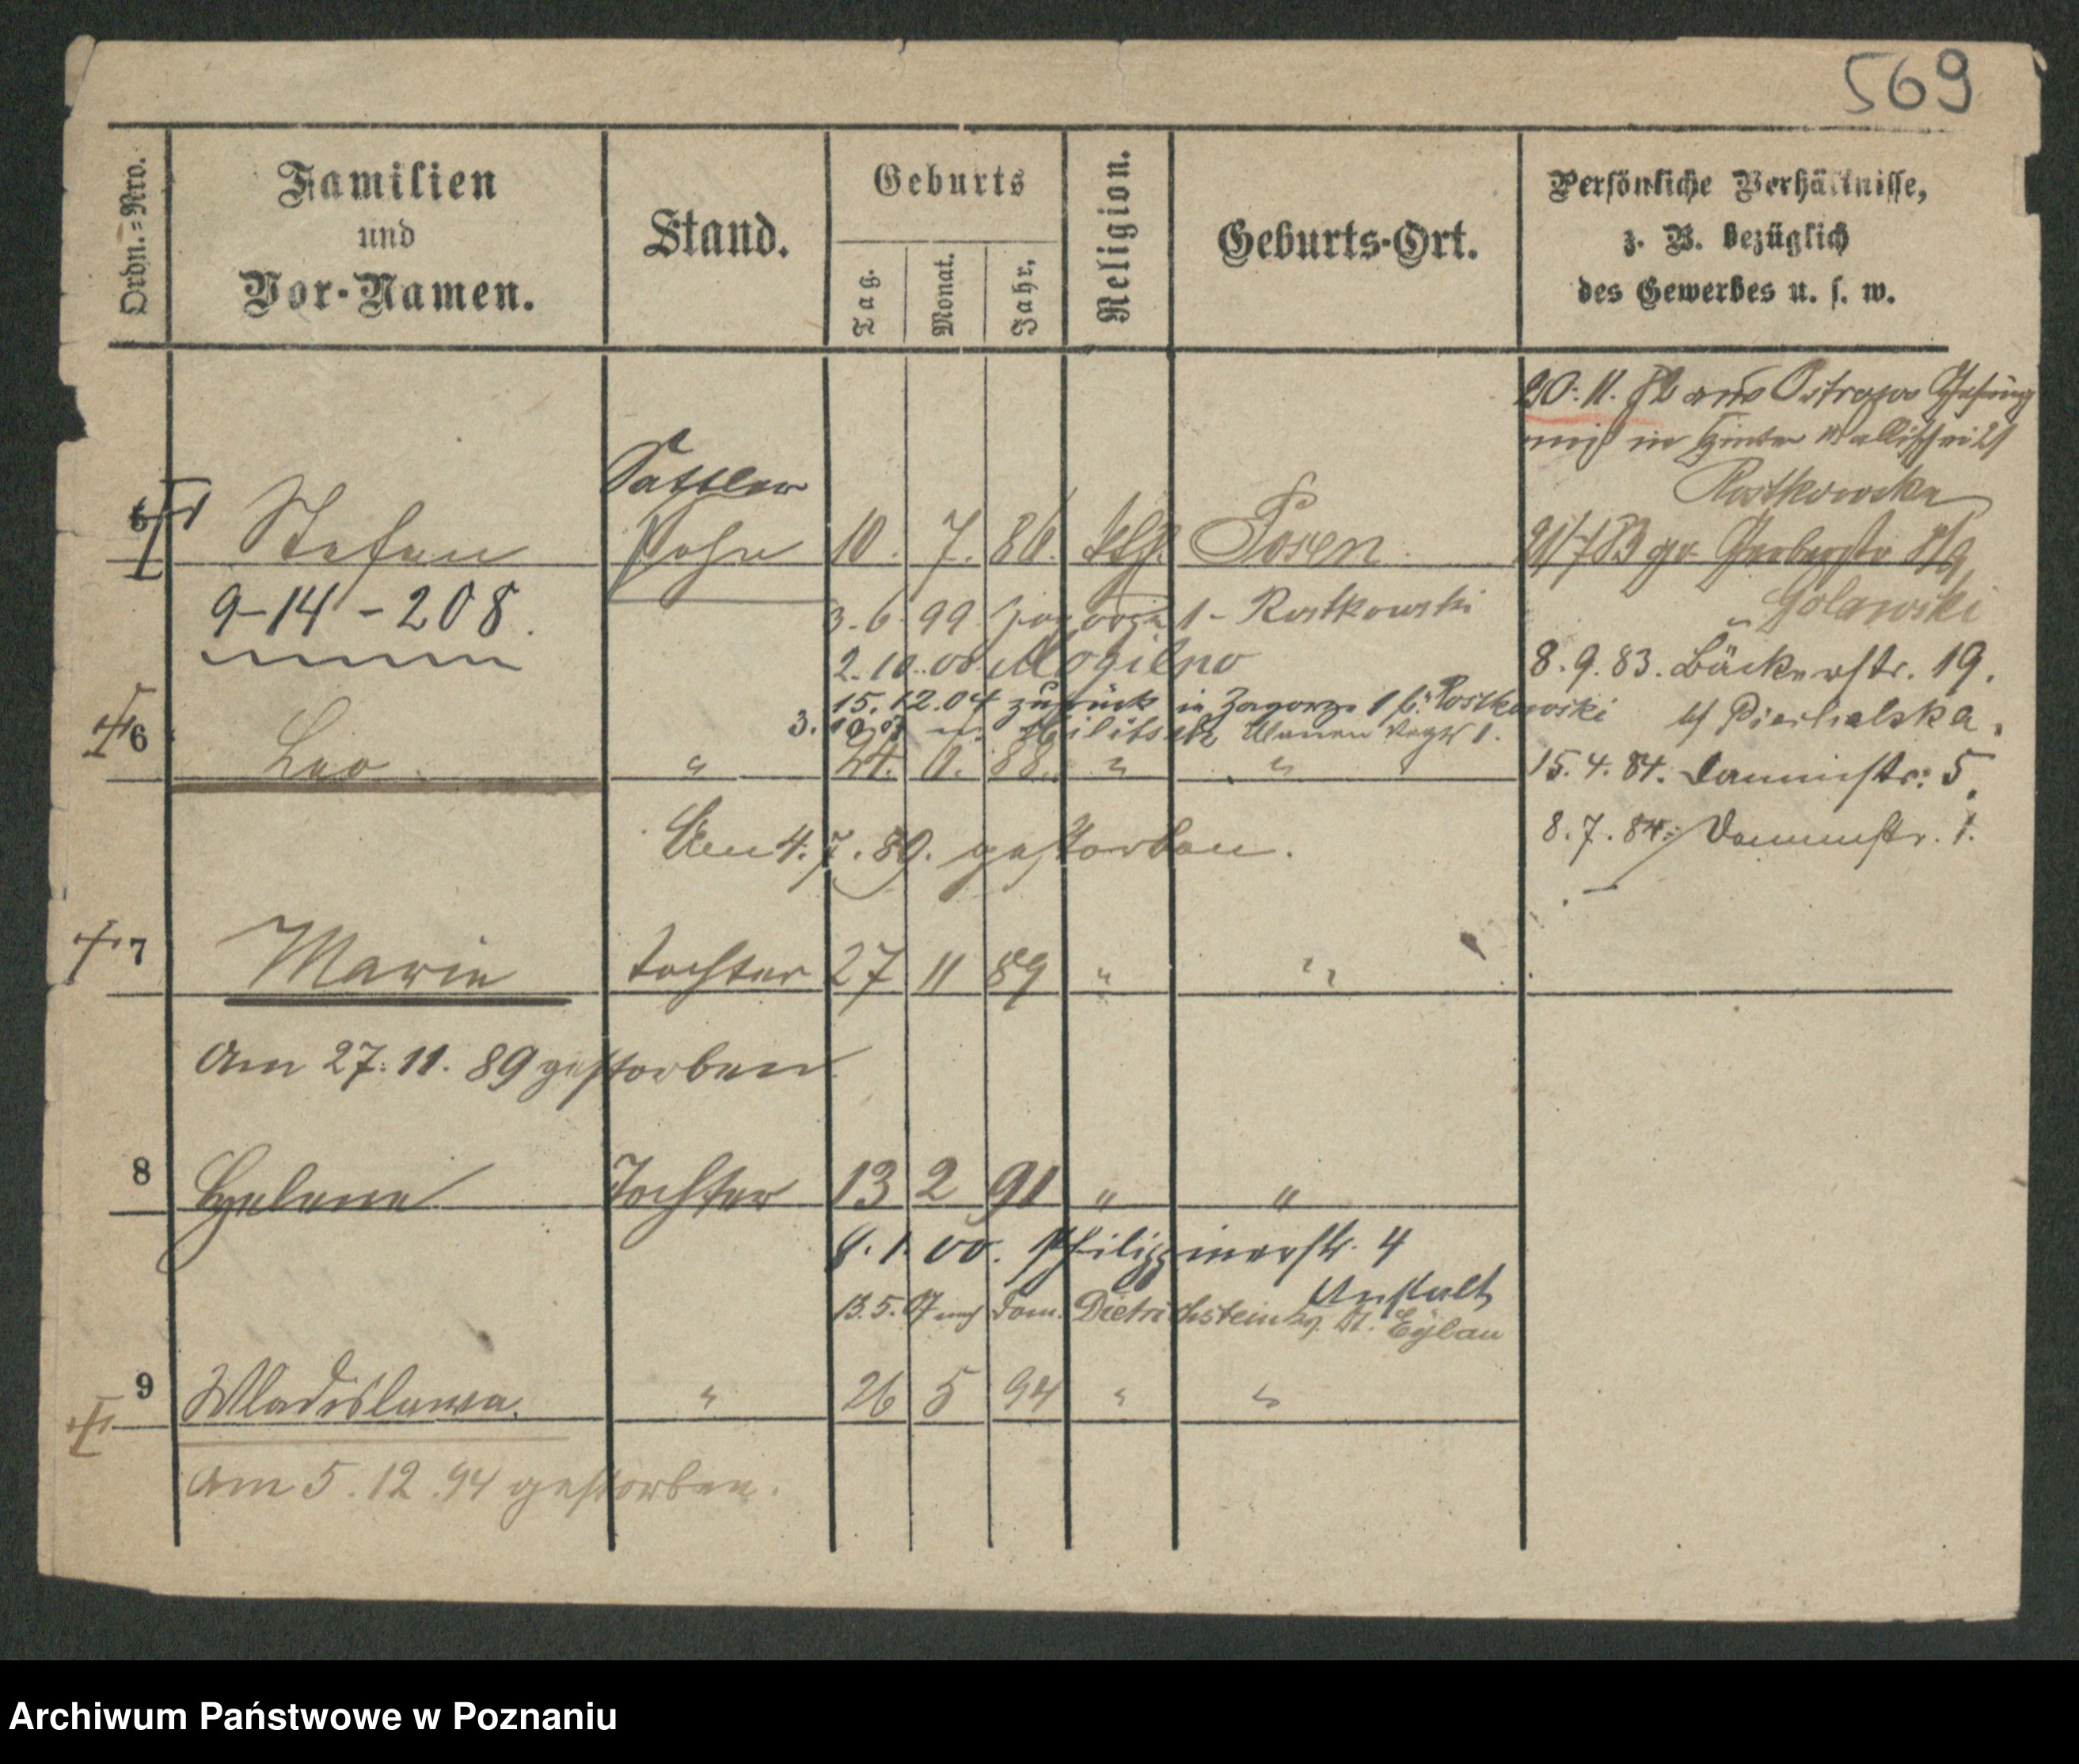 569
Ordn.-Nro.
Familien
und
Vor-Namen.
Stand.
Geburts
Tag.
Monat.
Jahr.
Religion.
Geburts-Ort.
Persönliche Verhältnisse,
z. B. bezüglich
des Gewerbes u. s. w.
20. 11. 82 aus Ostrowo
in Hinter Wallischei 21
Rostkowska
Sattler
5 Stefan Sohn 10. 7. 86. Posen.
21/7 83 Gerberstr
Golawski
9-14-208.
3. 6. 99 Zagorze 1 - Rostkowski
2. 10. 00. Mogilno
8. 9. 83. Bäckerstr. 19.
15. 12. 04 zurück in Zagorze 1 b. Rostkowski
3. 10 Militsch Ulanen Regt 1.
6 Leo " 24. 88. " "
15. 4. 84. Dammstr. 5.
Am 4. 7. 89. gestorben.
8. 7. 84. Dammstr. 1.
7 Marie Tochter 27 11 89 " "
Am 27. 11. 89 gestorben.
8 Helene Tochter 13 2 91 " "
8. 1. 00. Philippinerstr. 4
Anstalt
13. 5. 07 nach Dom. Dietrichstein Dt. Eylau
9 Wladislawa. " 26 5 94 " "
Am 5. 12. 94 gestorben.
Archiwum Państwowe w Poznaniu